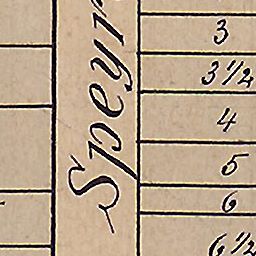 Speyr
3
3 1/2
4
5
6
6 1/2